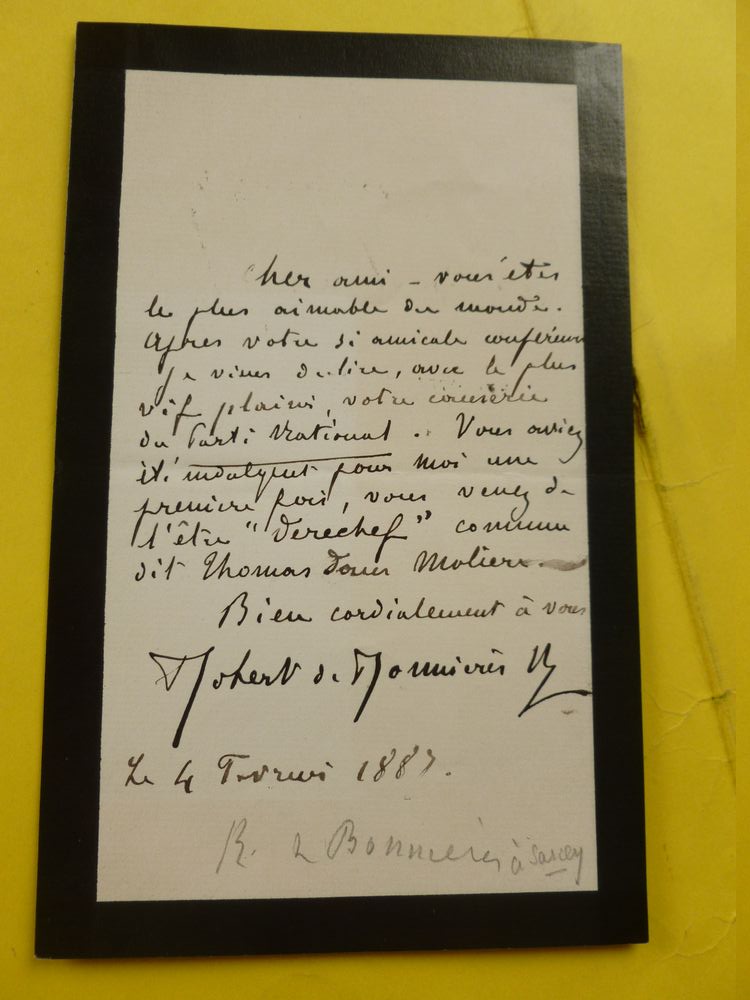 Cher ami - vous êtes
le plus aimable du monde.
Après votre si amicale conférence
je viens de lire, avec le plus
vif plaisir, votre causerie
du Parti National. Vous aviez
été indulgent pour moi une
première fois, vous venez de
l'être "derechef" comme
dit Thomas dans Molière.
Bien cordialement à vous
Robert de Bonnières
Le 4 Février 1887.
R. de Bonnières à Sarcey